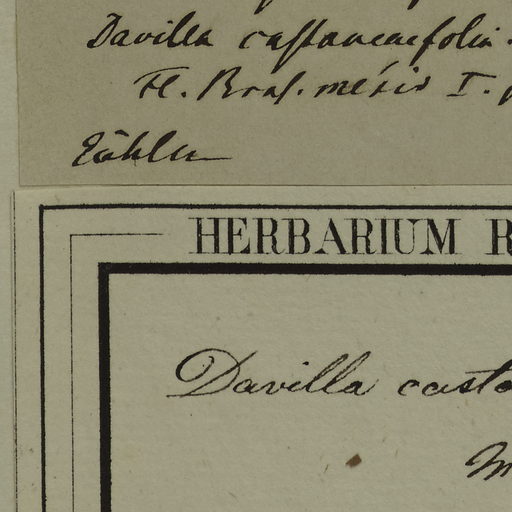 Davilla castaneaefolia
Fl. Bras. merid I.
HERBARIUM R
Davilla casta
M